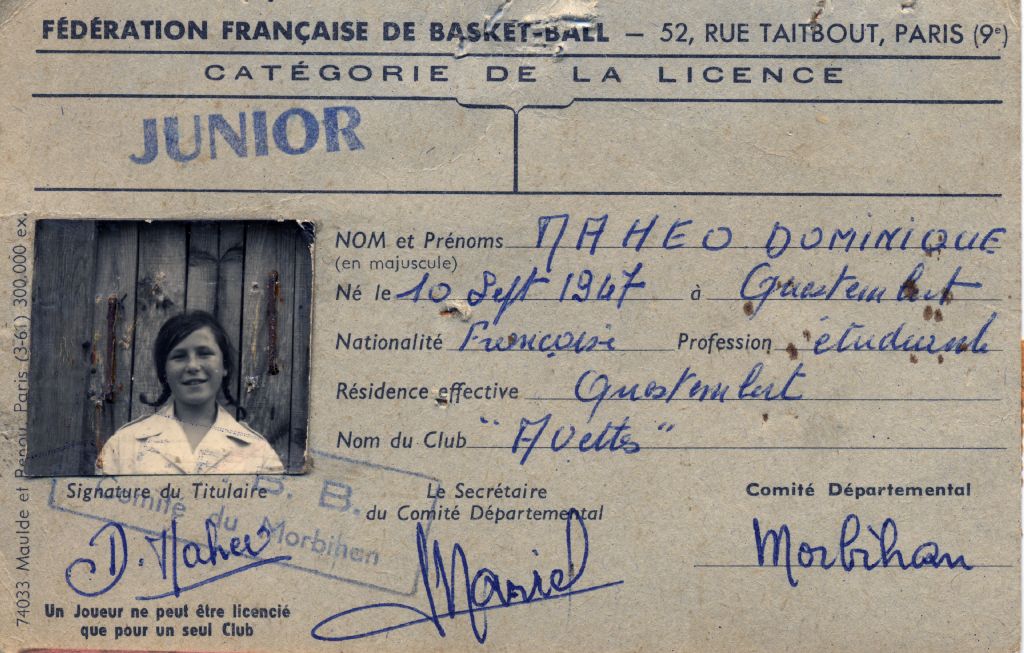 FÉDÉRATION FRANÇAISE DE BASKET-BALL — 52, RUE TAITBOUT, PARIS (9e)
CATÉGORIE DE LA LICENCE
JUNIOR
NOM et Prénoms MAHEO DOMINIQUE
(en majuscule)
Né le 10 Sept 1947 à Questembert
Nationalité Française Profession étudiante
Résidence effective Questembert
Nom du Club "Avettes"
B. B.
Comité du Morbihan
Signature du Titulaire
Le Secrétaire
du Comité Départemental
Comité Départemental
D. Maheo
Morbihan
Un Joueur ne peut être licencié
que pour un seul Club
74033 Maulde et Renou, Paris (3-61) 300.000 ex.